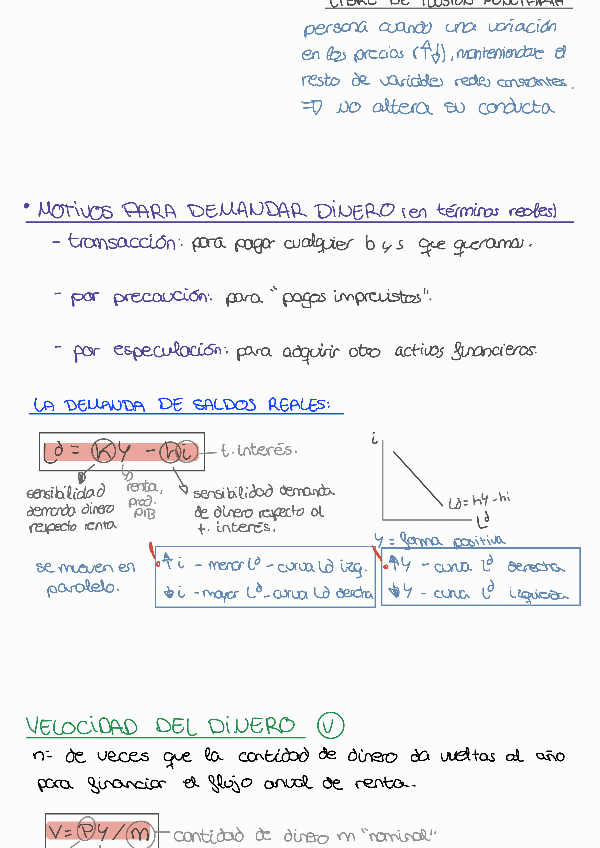 LIBRE DE ILUSIÓN MONETARIA
persona cuando una variación
en los precios (↑↓), manteniendose el
resto de variables reales constantes.
⇒ NO altera su conducta
• MOTIVOS PARA DEMANDAR DINERO (en términos reales)
- transacción: para pagar cualquier b y s que queramos.
- por precaución: para "pagos imprevistos".
- por especulación: para adquirir otro activos financieros.
LA DEMANDA DE SALDOS REALES:
Lᵈ = KY - hi
t. interés.
sensibilidad
demanda dinero
respecto renta
renta,
prod.
PIB
sensibilidad demanda
de dinero respecto al
t. interés.
i
Ld = KY - hi
Lᵈ
Y = forma positiva
se mueven en
paralelo.
↑ i - menor Lᵈ - curva Ld izq.
↓ i - mayor Lᵈ - curva Ld derecha
↑ Y - curva Lᵈ derecha
↓ Y - curva Lᵈ izquierda
VELOCIDAD DEL DINERO (V)
nº de veces que la cantidad de dinero da vueltas al año
para financiar el flujo anual de renta.
V = PY / M
cantidad de dinero m "nominal"